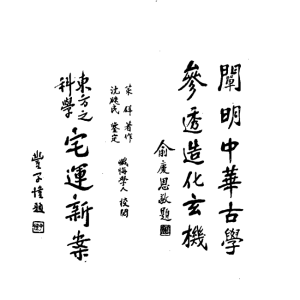 闡明中華古學
參透造化玄機
俞慶恩敬題
策群著作
沈瓞民鉴定
懺悔學人校閱
東方之
科學
宅運新案
豐子愷題